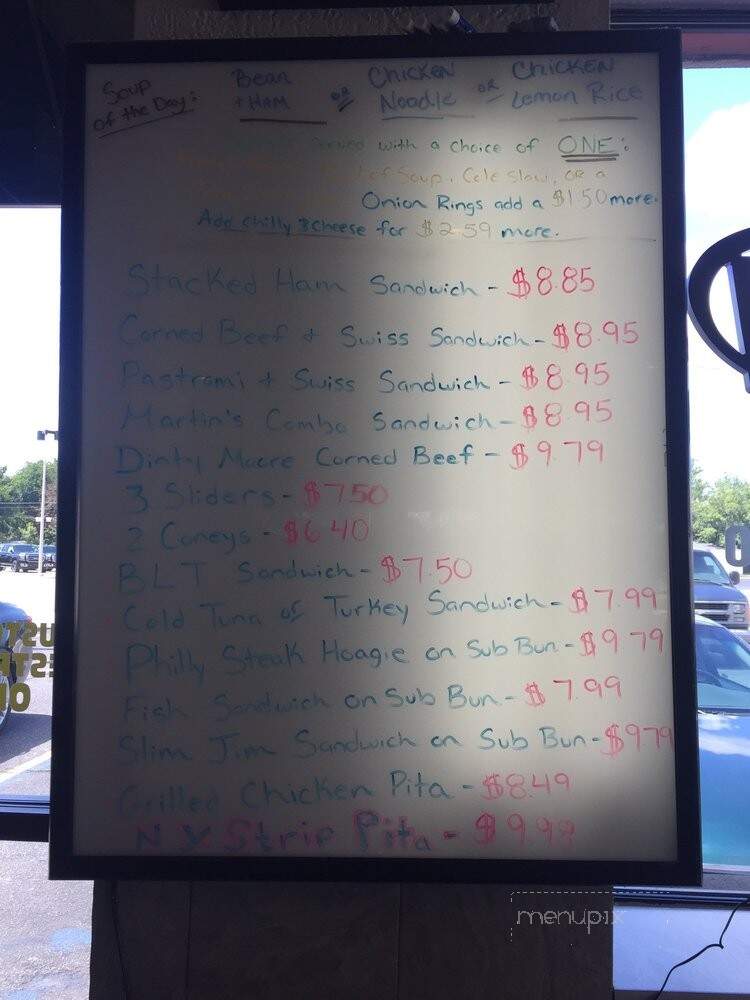 Soup of the Day: Bean + Ham or Chicken Noodle or Chicken Lemon Rice
served with a choice of ONE:
of Soup, Cole Slaw, or a
Onion Rings add a $1.50 more.
Add chilly & cheese for $2.59 more.
Stacked Ham Sandwich - $8.85
Corned Beef + Swiss Sandwich - $8.95
Pastrami + Swiss Sandwich - $8.95
Martin's Combo Sandwich - $8.95
Dinty Moore Corned Beef - $9.79
3 Sliders - $7.50
2 Coneys - $6.40
BLT Sandwich - $7.50
Cold Tuna or Turkey Sandwich - $7.99
Philly Steak Hoagie on Sub Bun - $9.79
Fish Sandwich on Sub Bun - $7.99
Slim Jim Sandwich on Sub Bun - $9.79
Grilled Chicken Pita - $8.49
NY Strip Pita - $9.99
menupix